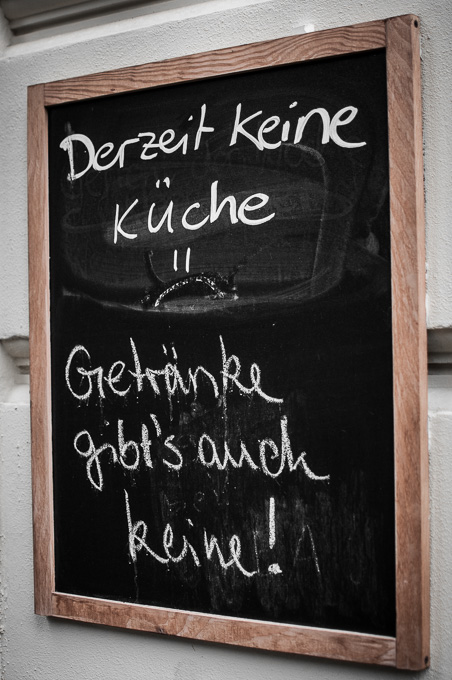 Derzeit keine
Küche
Getränke
gibt's auch
keine!